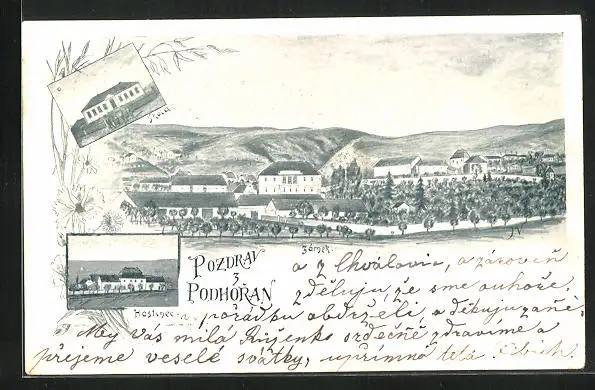 Škola
Zámek.
Hostinec
POZDRAV
z
PODHOŘAN
a z Chvalovic, a zároveň
zděluju, že sme ouhoře,
pořádku obdrželi, a děkuju zaně;
My vás milá Růženko srdečně zdravíme a
přejeme veselé svátky, upřímná teta